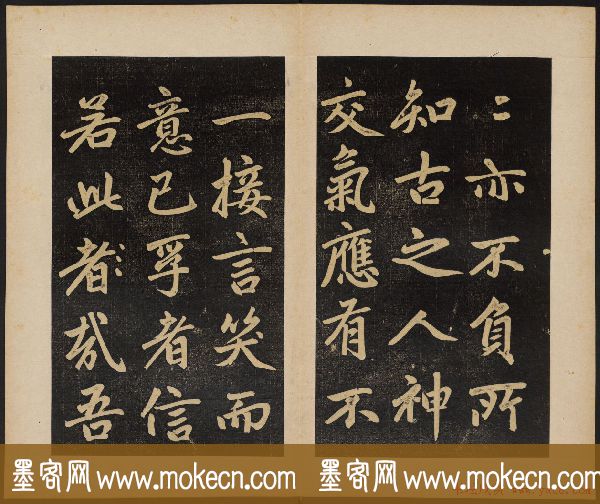 〻亦不負所
知古之人神
交氣應有不
一接言笑而
意已孚者信
若此者哉吾
墨客网 www.mokecn.com
墨客网 www.mokecn.com